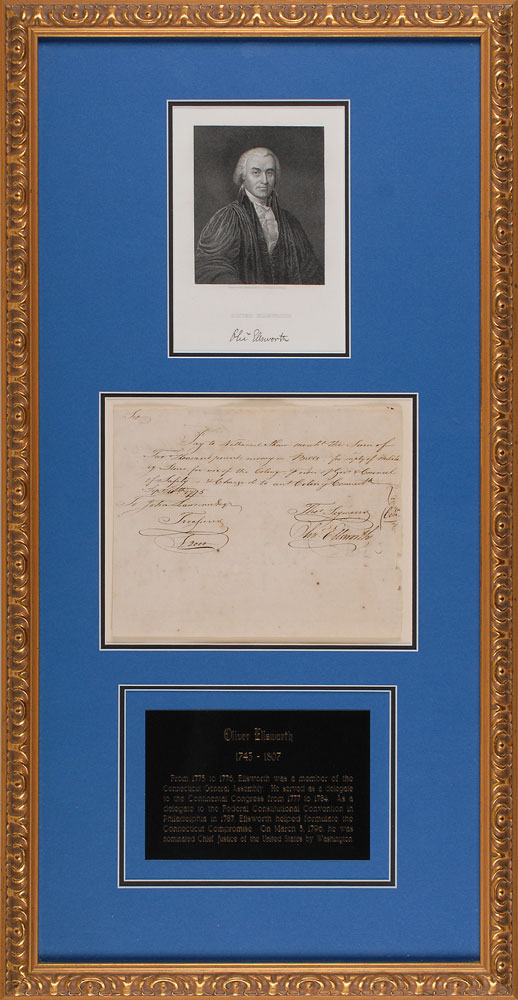 OLIVER ELLSWORTH
Olivr Ellsworth
Sir
Pay to Nathaniel Shaw the Sum of
Two Thousand pounds money in Bills for
for use of the Colony & Council
of Safety & Charge it to
Sept 1775
To John Lawrence Esqr
Treasurer
£2000
Thos Seymour
Olivr Ellsworth
Oliver Ellsworth
1745 - 1807
From 1775 to 1776, Ellsworth was a member of the
Connecticut General Assembly. He served as a delegate
to the Continental Congress from 1777 to 1784. As a
delegate to the Federal Constitutional Convention in
Philadelphia in 1787, Ellsworth helped formulate the
Connecticut Compromise. On March 3, 1796, he was
nominated Chief Justice of the United States by Washington